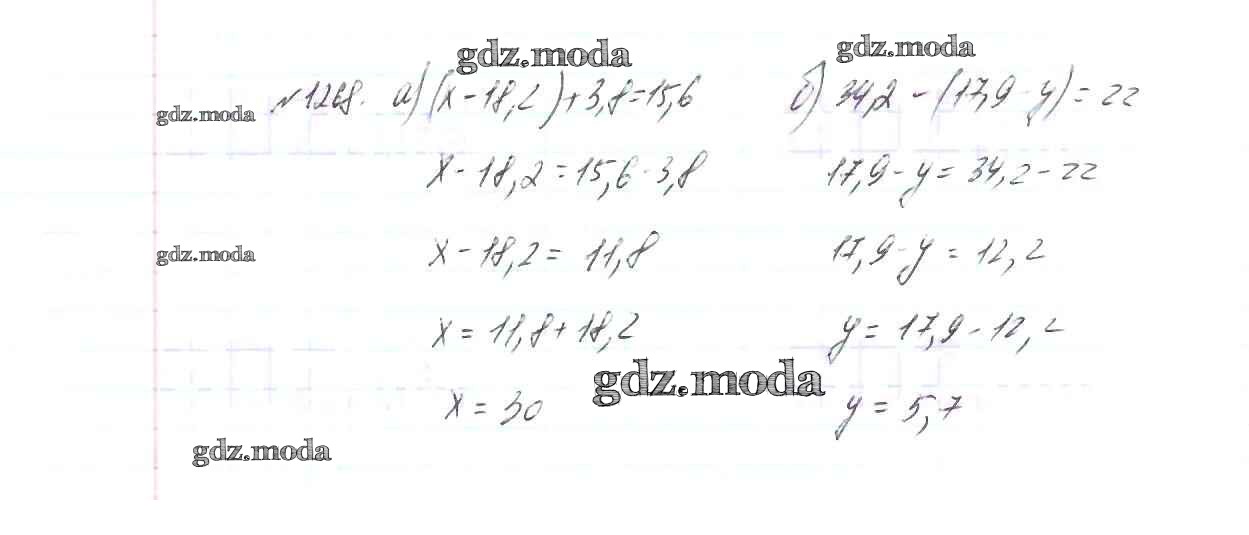 gdz.moda
gdz.moda
gdz.moda
№1268. а) (x - 18,2) + 3,8 = 15,6
x - 18,2 = 15,6 - 3,8
x - 18,2 = 11,8
x = 11,8 + 18,2
x = 30
б) 34,2 - (17,9 - y) = 22
17,9 - y = 34,2 - 22
17,9 - y = 12,2
y = 17,9 - 12,2
y = 5,7
gdz.moda
gdz.moda
gdz.moda